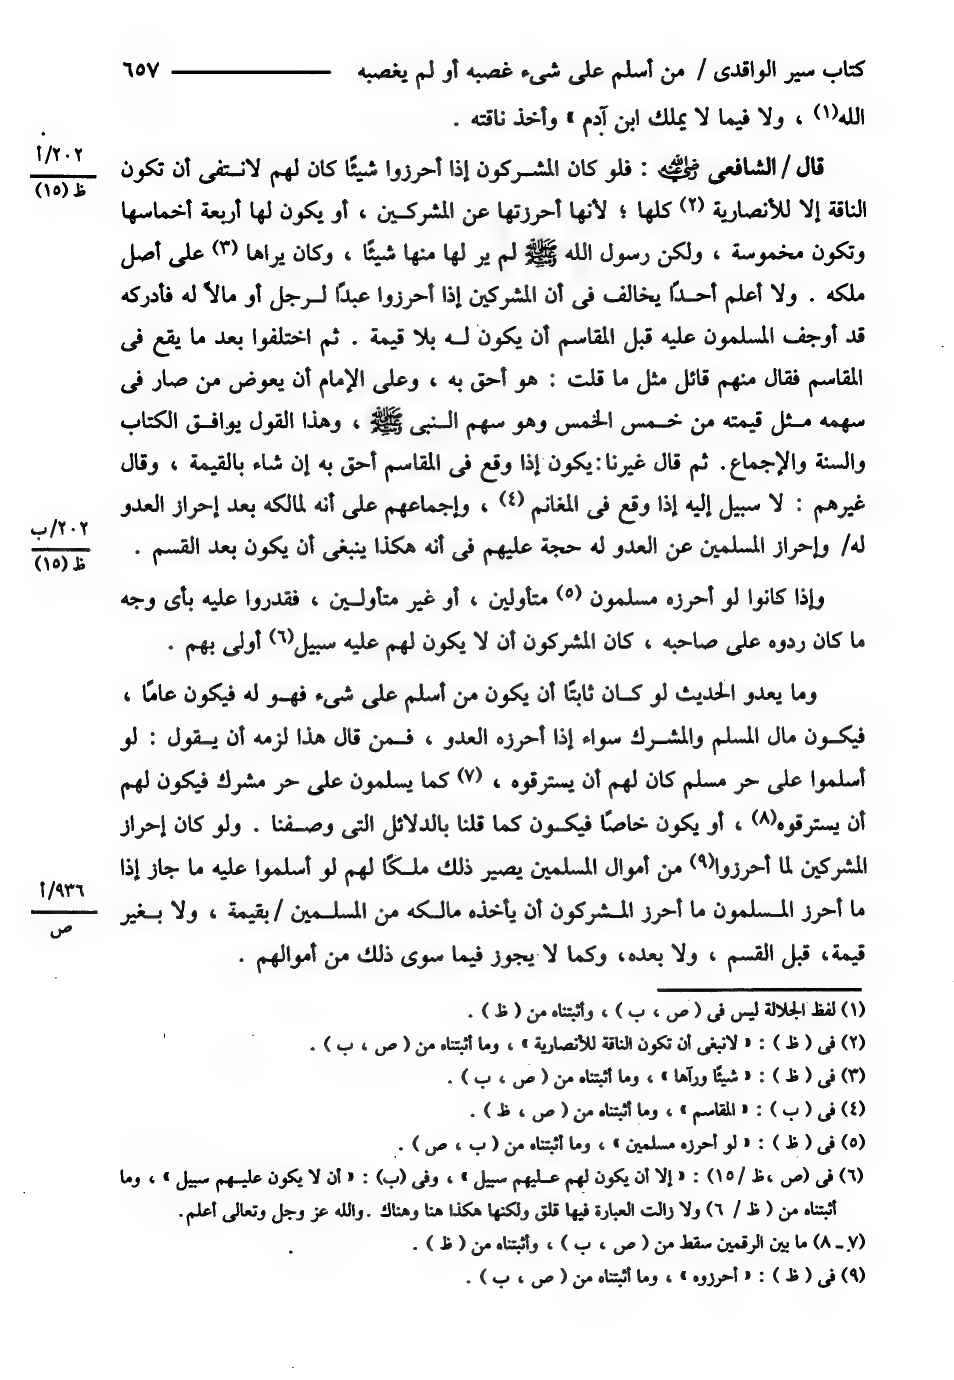 كتاب سير الواقدى / من أسلم على شىء غصبه أو لم يغصبه ـــــــــ ٦٥٧
الله(١) ، ولا فيما لا يملك ابن آدم » وأخذ ناقته .
٢٠٢/أ
ظ (١٥)
قال / الشافعى رضي الله عنه : فلو كان المشـركون إذا أحرزوا شيئًا كان لهم لانـتفى أن تكون
الناقة إلا للأنصارية (٢) كلها ؛ لأنها أحرزتها عن المشركـين ، أو يكون لها أربعة أخماسها
وتكون مخموسة ، ولكن رسول الله ﷺ لم ير لها منها شيئًا ، وكان يراها (٣) على أصل
ملكه . ولا أعلم أحـدًا يخالف فى أن المشركين إذا أحرزوا عبدًا لـرجل أو مالاً له فأدركه
قد أوجف المسلمون عليه قبل المقاسم أن يكون لـه بلا قيمة . ثم اختلفوا بعد ما يقع فى
المقاسم فقال منهم قائل مثل ما قلت : هو أحق به ، وعلى الإمام أن يعوض من صار فى
سهمه مـثل قيمته من خـمس الخمس وهو سهم الـنبى ﷺ ، وهذا القول يوافـق الكتاب
والسنة والإجماع. ثم قال غيرنا:يكون إذا وقع فى المقاسم أحق به إن شاء بالقيمة ، وقال
غيرهم : لا سبيل إليه إذا وقع فى المغانم (٤) ، وإجماعهم على أنه لمالكه بعد إحراز العدو
٢٠٢/ب
ظ (١٥)
له/ وإحراز المسلمين عن العدو له حجة عليهم فى أنه هكذا ينبغى أن يكون بعد القسم .
وإذا كانوا لو أحرزه مسلمون (٥) متأولين ، أو غير متأولـين ، فقدروا عليه بأى وجه
ما كان ردوه على صاحبه ، كان المشركون أن لا يكون لهم عليه سبيل(٦) أولى بهم .
وما يعدو الحديث لو كـان ثابتًا أن يكون من أسلم على شىء فهـو له فيكون عامًا ،
فيكـون مال المسلم والمشـرك سواء إذا أحرزه العدو ، فـمن قال هذا لزمه أن يـقول : لو
أسلموا على حر مسلم كان لهم أن يسترقوه ، (٧) كما يسلمون على حر مشرك فيكون لهم
أن يسترقوه(٨) ، أو يكون خاصًا فيكـون كما قلنا بالدلائل التى وصـفنا . ولو كان إحراز
المشركين لما أحرزوا(٩) من أموال المسلمين يصير ذلك ملـكًا لهم لو أسلموا عليه ما جاز إذا
٩٣٦/أ
ص
ما أحرز المـسلمون ما أحرز المـشركون أن يأخذه مالـكه من المسلـمين /بقيمة ، ولا بـغير
قيمة، قبل القسم ، ولا بعده، وكما لا يجوز فيما سوى ذلك من أموالهم .
(١) لفظ الجلالة ليس فى ( ص ، ب ) ، وأثبتناه من ( ظ ) .
(٢) فى ( ظ ) : « لانبغى أن تكون الناقة للأنصارية » ، وما أثبتناه من ( ص ، ب ) .
(٣) فى ( ظ ) : « شيئًا ورآها » ، وما أثبتناه من ( ص ، ب ) .
(٤) فى ( ب ) : « المقاسم » ، وما أثبتناه من ( ص ، ظ ) .
(٥) فى ( ظ ) : « لو أحرزه مسلمين » ، وما أثبتناه من ( ب ، ص ) .
(٦) فى (ص ،ظ /١٥) : « إلا أن يكون لهم عـليهم سبيل » ، وفى (ب) : « أن لا يكون عليـهم سبيل » ، وما
أثبتناه من ( ظ / ٦) ولا زالت العبارة فيها قلق ولكنها هكذا هنا وهناك .والله عز وجل وتعالى أعلم.
(٧ـ ٨) ما بين الرقمين سقط من ( ص ، ب ) ، وأثبتناه من ( ظ ) .
(٩) فى ( ظ ) : « أحرزوه » ، وما أثبتناه من ( ص ، ب ) .